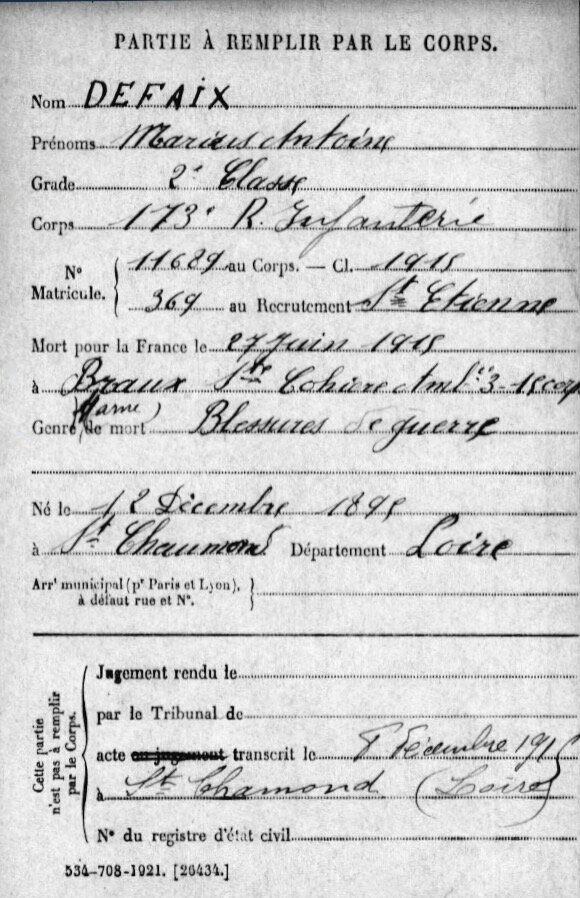 PARTIE À REMPLIR PAR LE CORPS.
Nom DEFAIX
Prénoms Marius Antoine
Grade 2e Classe
Corps 173e R. Infanterie
No Matricule. 11689 au Corps. — Cl. 1915
369 au Recrutement St Etienne
Mort pour la France le 27 Juin 1915
à Braux Ste Cohière Ambce 3-15 corps
(Marne)
Genre de mort Blessures de guerre
Né le 12 Décembre 1895
à St Chaumond Département Loire
Arrt municipal (pr Paris et Lyon),
à défaut rue et No.
Cette partie n'est pas à remplir par le Corps.
Jugement rendu le
par le Tribunal de
acte ou jugement transcrit le 8 Décembre 191
à St Chamond (Loire)
No du registre d'état civil
534-708-1921. [26434.]